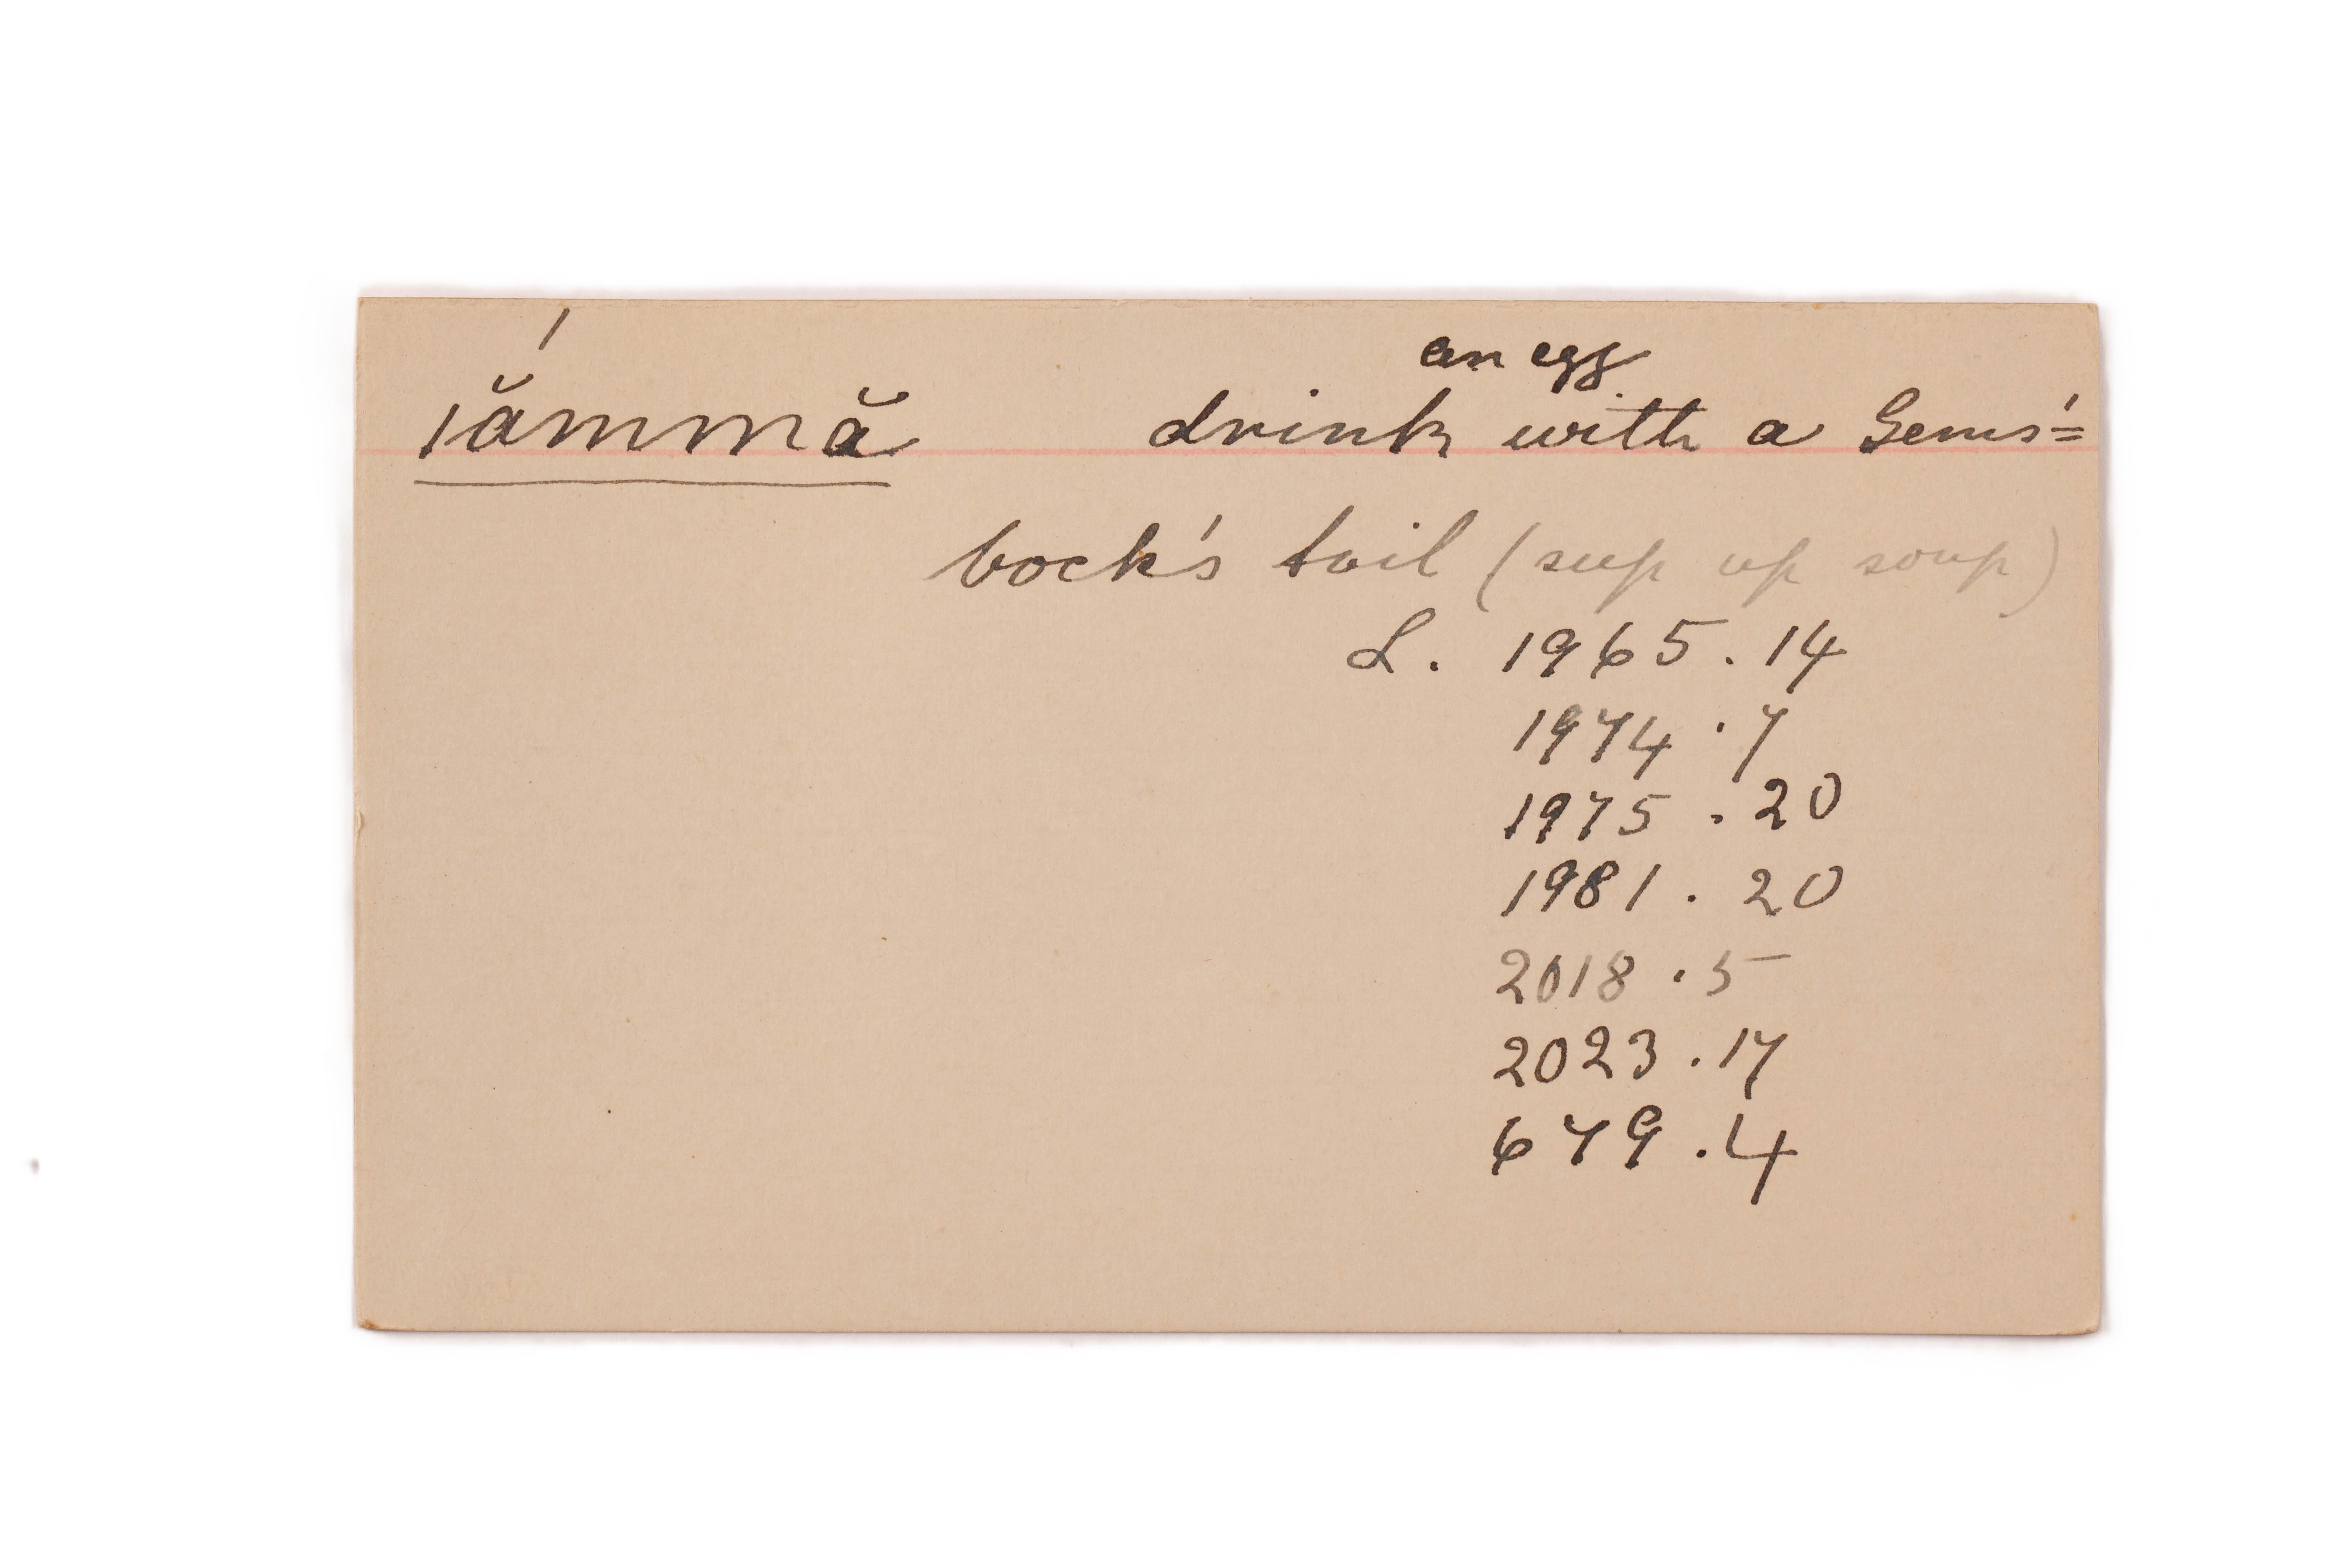 ˊ
ǀămmă drink an egg with a Gems'=
bock's tail (sup up soup)
L. 1965.14
1974.7
1975.20
1981.20
2018.5
2023.17
679.4